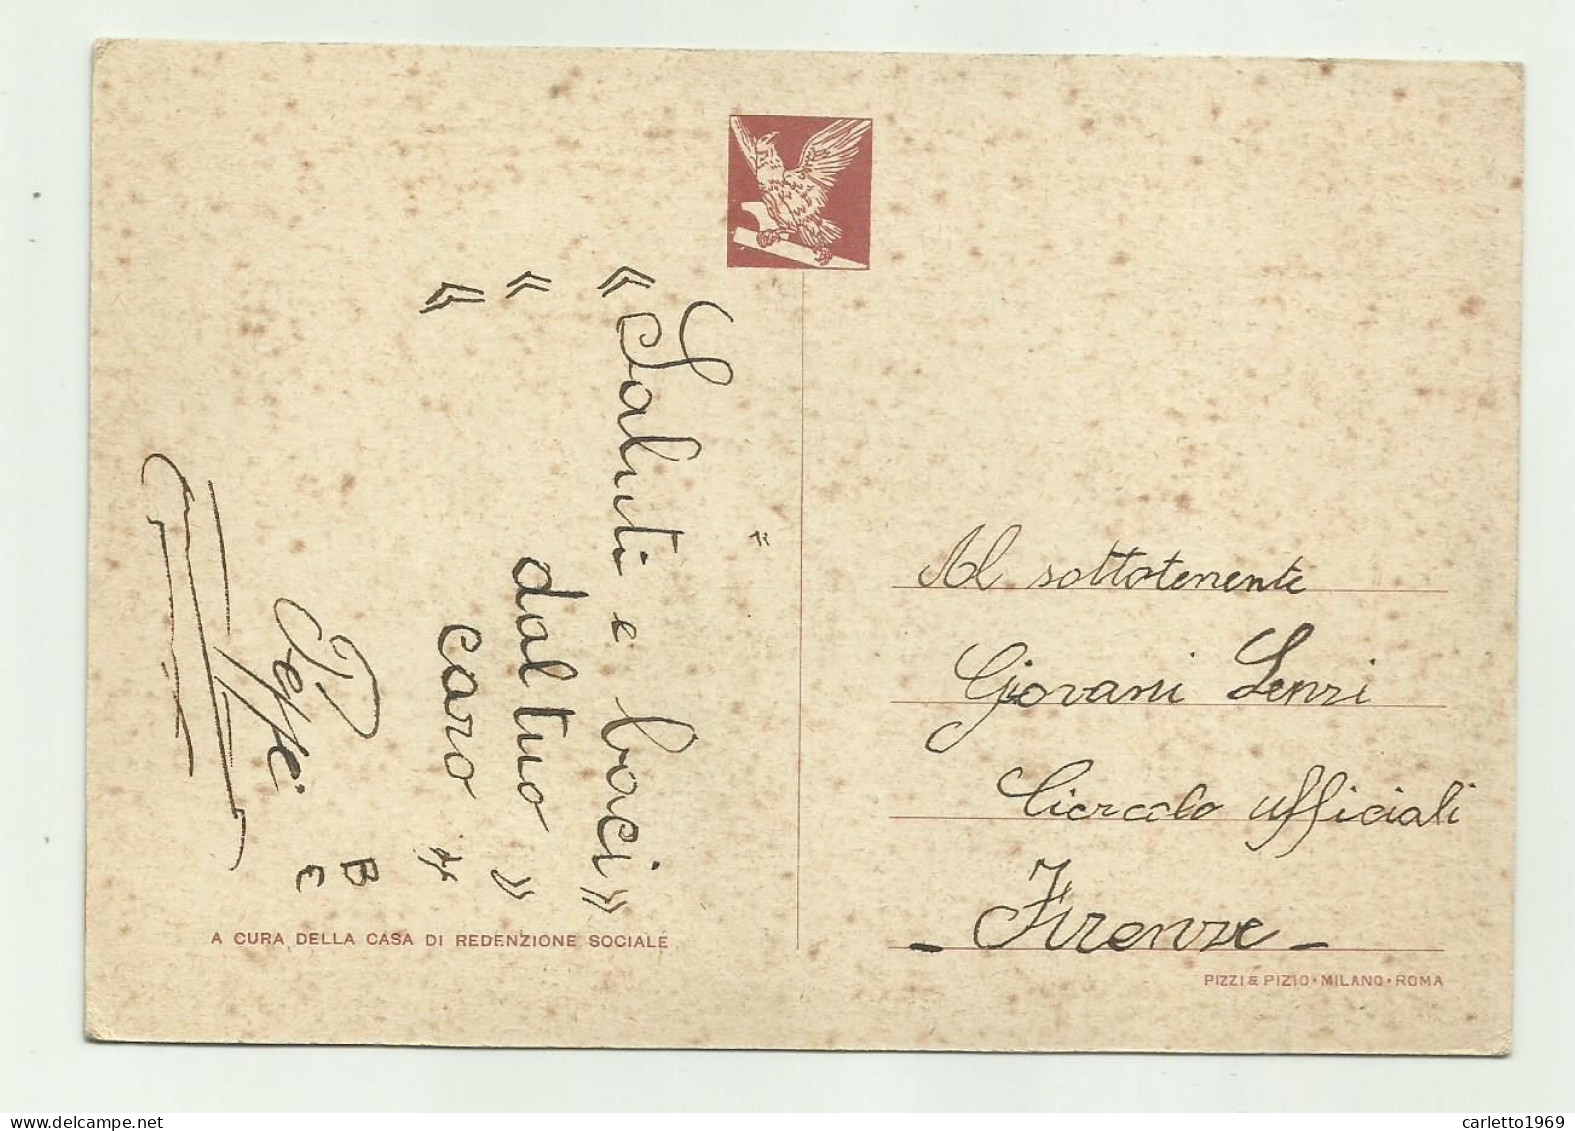 « Saluti e baci »
« dal tuo »
« caro »
Peppe
B
E
A CURA DELLA CASA DI REDENZIONE SOCIALE
Al sottotenente
Giovani Lenzi
Circolo ufficiali
- Firenze -
PIZZI & PIZIO • MILANO • ROMA
carletto1969